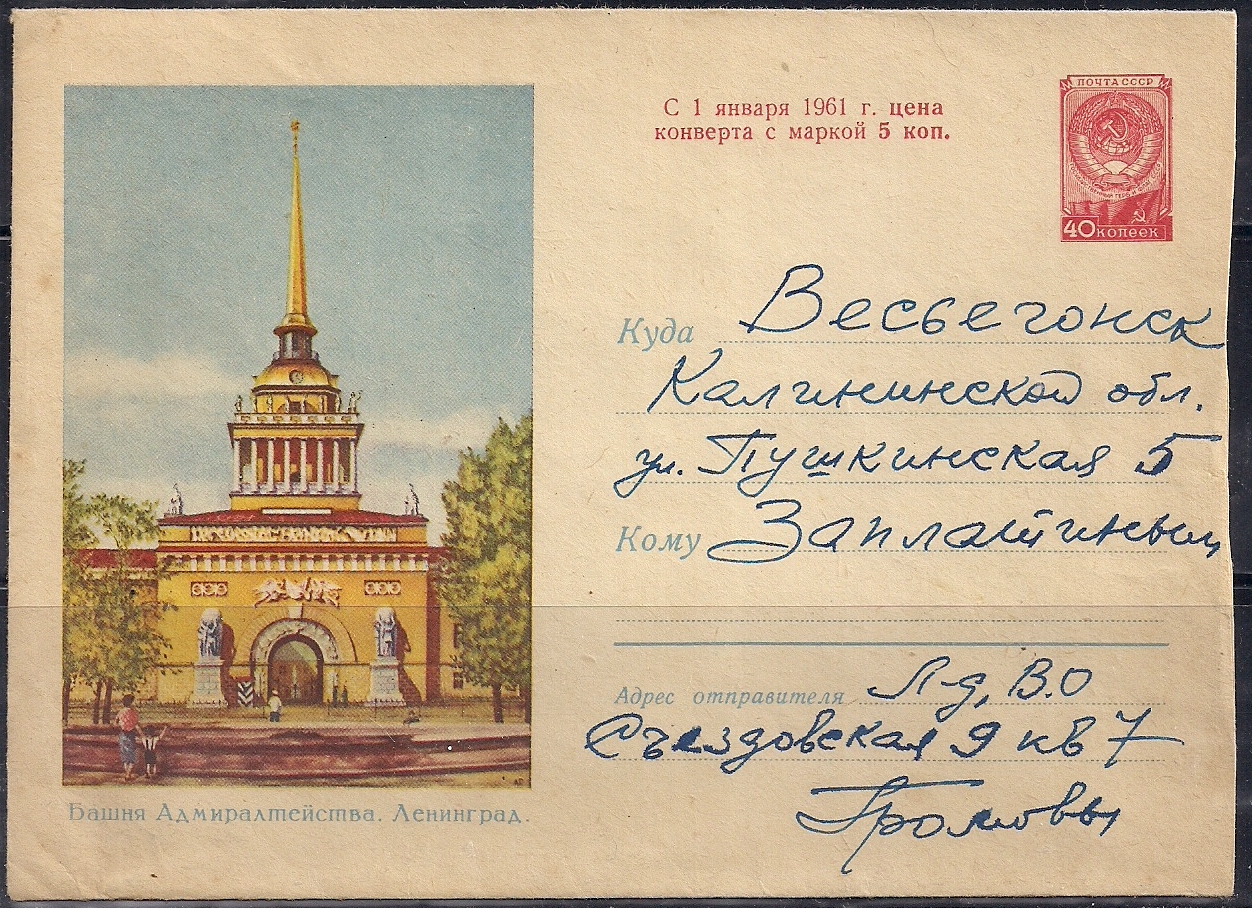 С 1 января 1961 г. цена
конверта с маркой 5 коп.
ПОЧТА СССР
40 КОПЕЕК
Куда Весьегонск
Калининской обл.
ул. Пушкинская 5
Кому Заплатиным
Адрес отправителя Л-д, В.О
Съездовская 9 кв 7
Громовы
Башня Адмиралтейства. Ленинград.